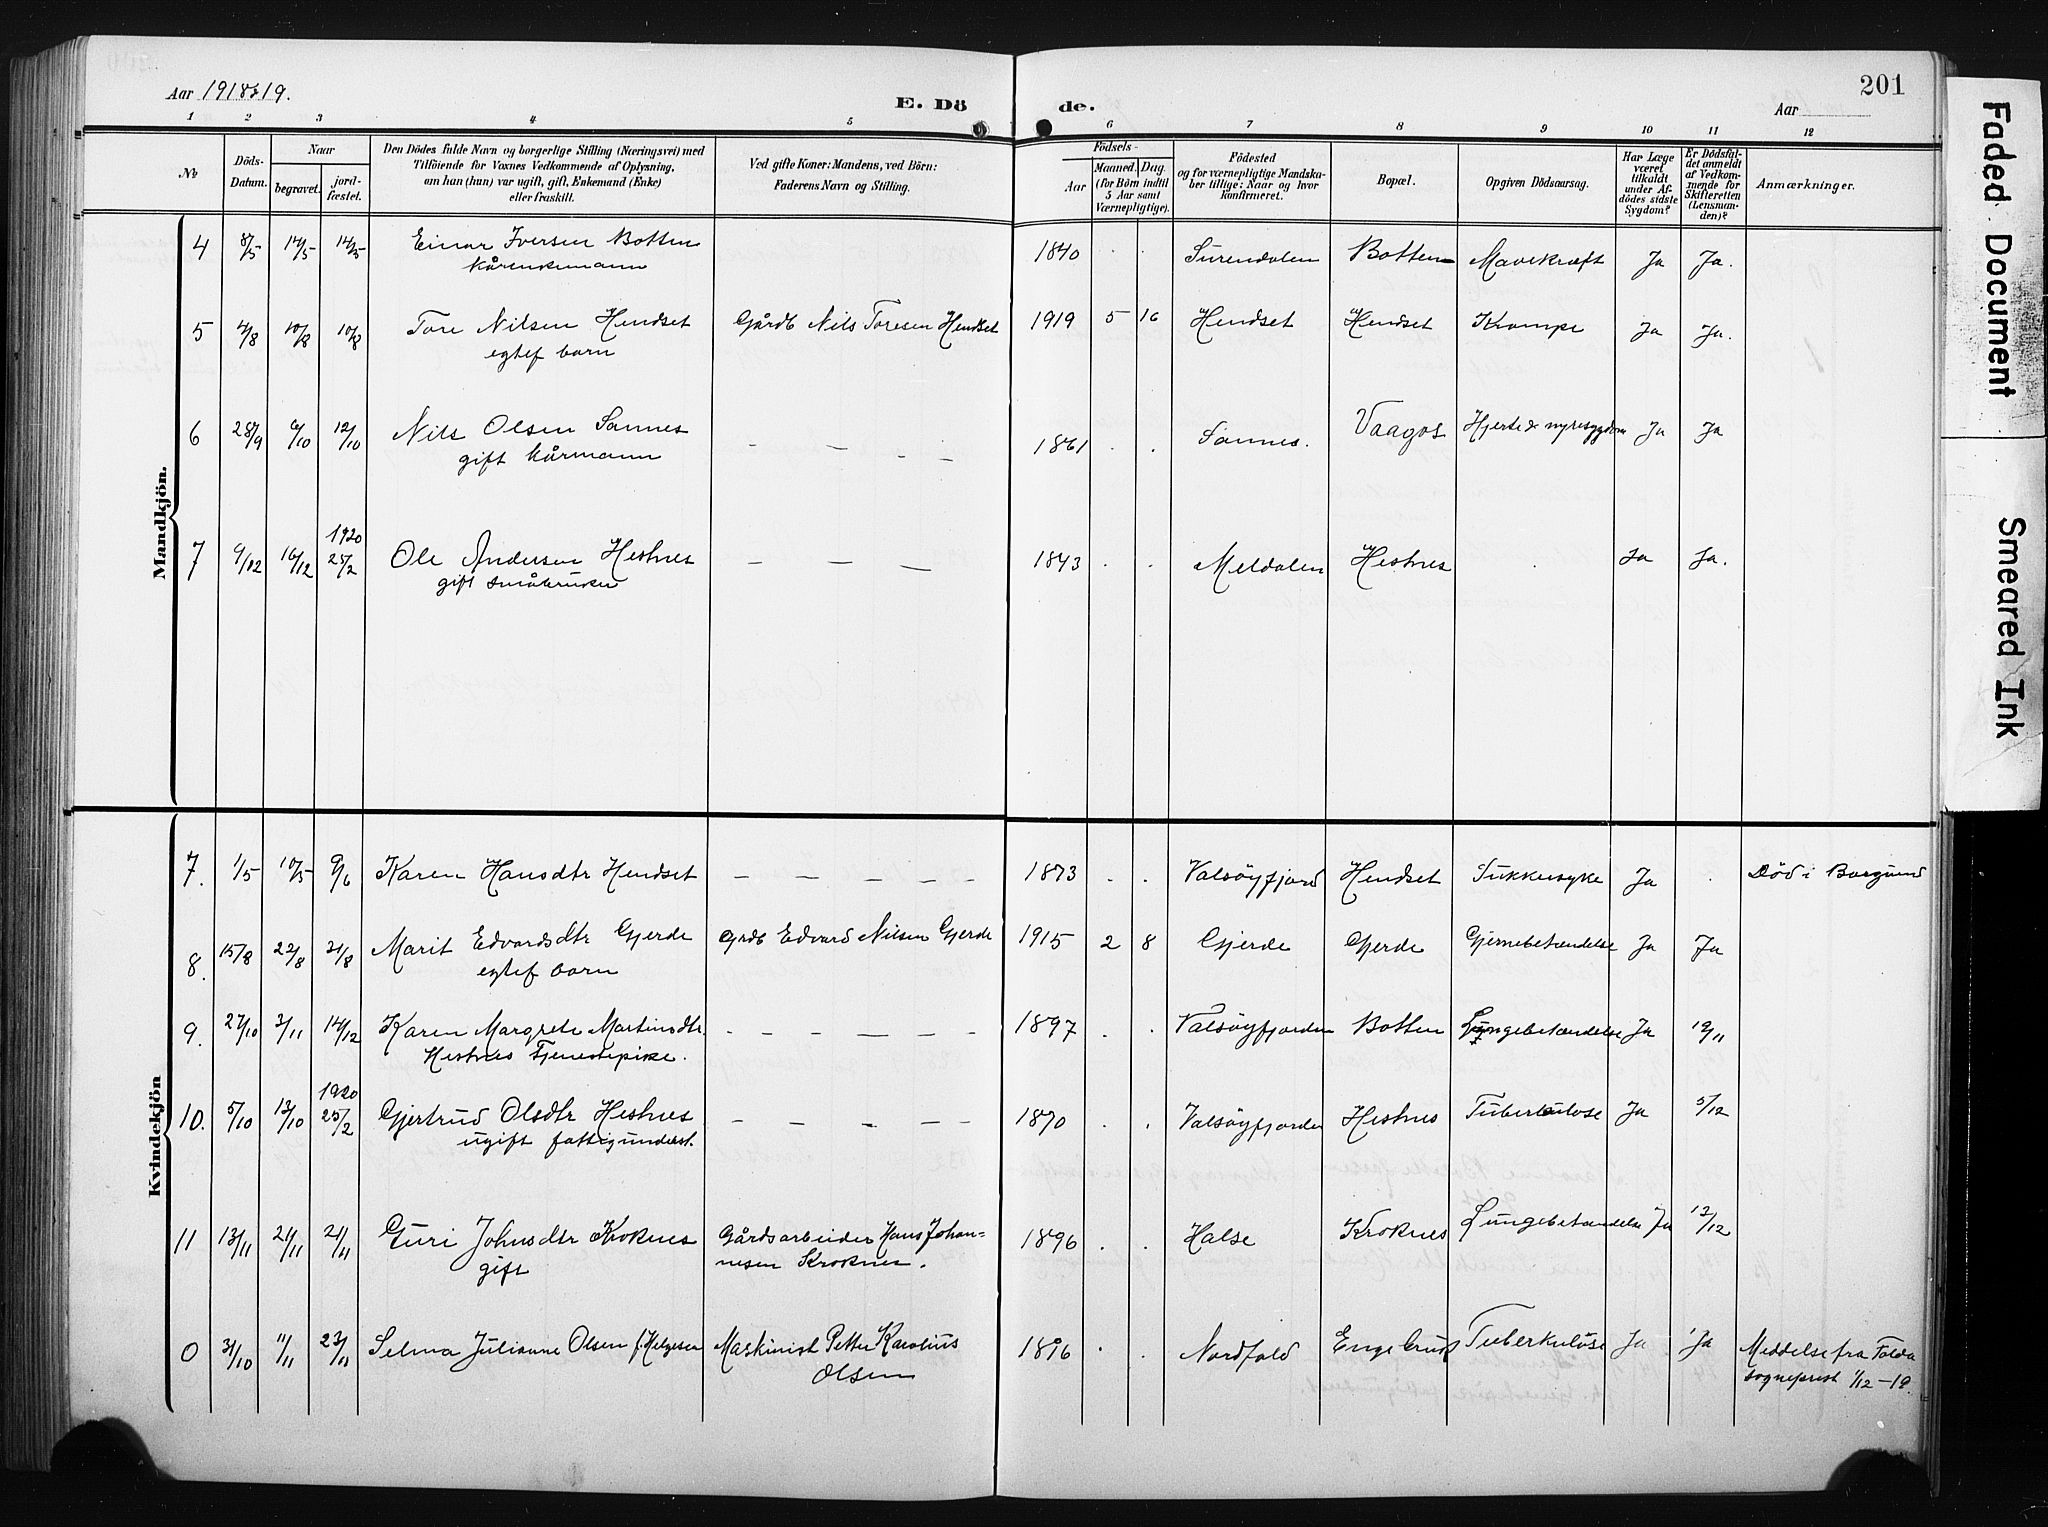 Aar 1918&19.
E. Dö de.
201
Aar
1 2 3 4 5 6 7 8 9 10 11 12
No
Döds-Datum.
Naar
begravet.
jord-fæstet.
Den Dödes fulde Navn og borgerlige Stilling (Næringsvei) med
Tilföiende for Voxnes Vedkommende af Oplysning,
om han (hun) var ugift, gift, Enkemand (Enke)
eller fraskilt.
Ved gifte Koner: Mandens, ved Börn:
Faderens Navn og Stilling.
Födsels-
Aar
Maaned. Dag.
(for Börn indtil
5 Aar samt
Værnepligtige).
Födested
og for værnepligtige Mandska-
ber tillige: Naar og hvor
konfirmeret.
Bopæl.
Opgiven Dödsaarsag.
Har Læge
været
tilkaldt
under Af-
dödes sidste
Sygdom?
Er Dödsfal-
det anmeldt
af Vedkom-
mende for
Skifteretten
(Lensman-
den)?
Anmærkninger.
Mandkjön.
4 8/5 14/5 14/5 Einar Iversen Botten 1840 . . Surendalen Botten Mavekræft Ja Ja.
kårenkemann
5 4/8 10/8 10/8 Tore Nilsen Hendset Gårdb Nils Toresen Hendset 1919 5 16 Hendset Hendset Krampe Ja Ja.
egtef barn
6 28/9 6/10 12/10 Nils Olsen Sannes – – – – 1861 . . Sannes. Vaagos Hjerte & nyresygdom Ja Ja
gift kårmann
1920
7 9/12 16/12 25/2 Ole Andersen Hestnes – – – 1843 . . Meldalen Hestnes . Ja Ja.
gift småbruker
Kvindekjön
7. 1/5 10/5 9/6 Karen Hansdtr Hendset – – – – – 1873 . . Valsöyfjord Hendset Sukkersyke Ja . Död i Borgund
8. 15/8 22/8 31/8 Marit Edvardsdtr Gjerde Grdb Edvard Nilsen Gjerde 1915 2 8 Gjerde Gjerde Hjernebetændelse Ja Ja
egtef barn
9. 27/10 3/11 14/12 Karen Margrete Martinsdtr. – – – – – 1897 . . Valsöyfjorden Botten Lungebetændelse Ja 10/11
Hestnes Tjenestepike.
1920
10. 5/10 13/10 25/2 Gjertrud Olsdtr Hestnes – – – – – 1870 . . Valsöyfjorden Hestnes Tuberkulose Ja 5/12
ugift fattigunderst.
11 13/11 21/11 21/11 Guri Johnsdtr Kroknes Gårdsarbeider Hans Johan- 1896 . . Halse Kroknes Lungebetændelse Ja 12/12
gift nesen Kroknes.
0 31/10 11/11 23/11 Selma Julianne Olsen f. Helgesen Maskinist Petter Karolius 1896 . . Nordfold Tuberkulose Ja Ja Meddelse fra
Olsen sogneprest 1/12–19.
Faded Document
Smeared Ink